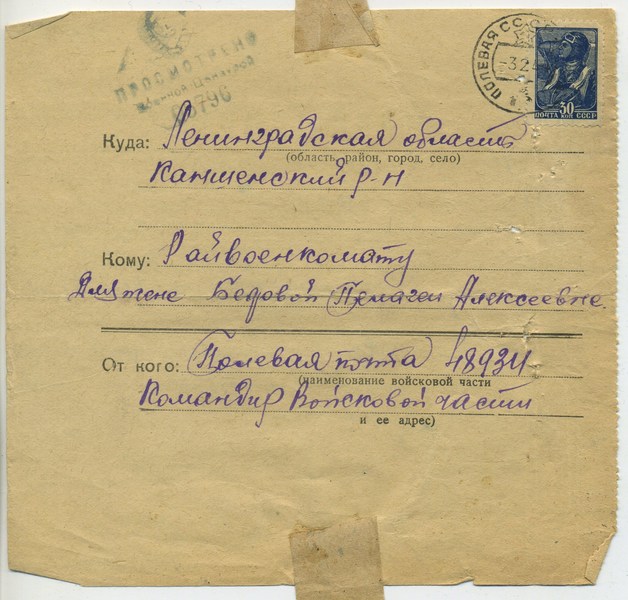 ПРОСМОТРЕНО
Военной Цензурой
796
ПОЛЕВАЯ
3.2
30
ПОЧТА КОП СССР
Куда: Ленинградская область
(область, район, город, село)
Каншенский р-н
Кому: Райвоенкомату
Для жене Бедовой Пелагеи Алексеевне
От кого: Полевая почта 48934
(наименование войсковой части
Командир войсковой части
и ее адрес)